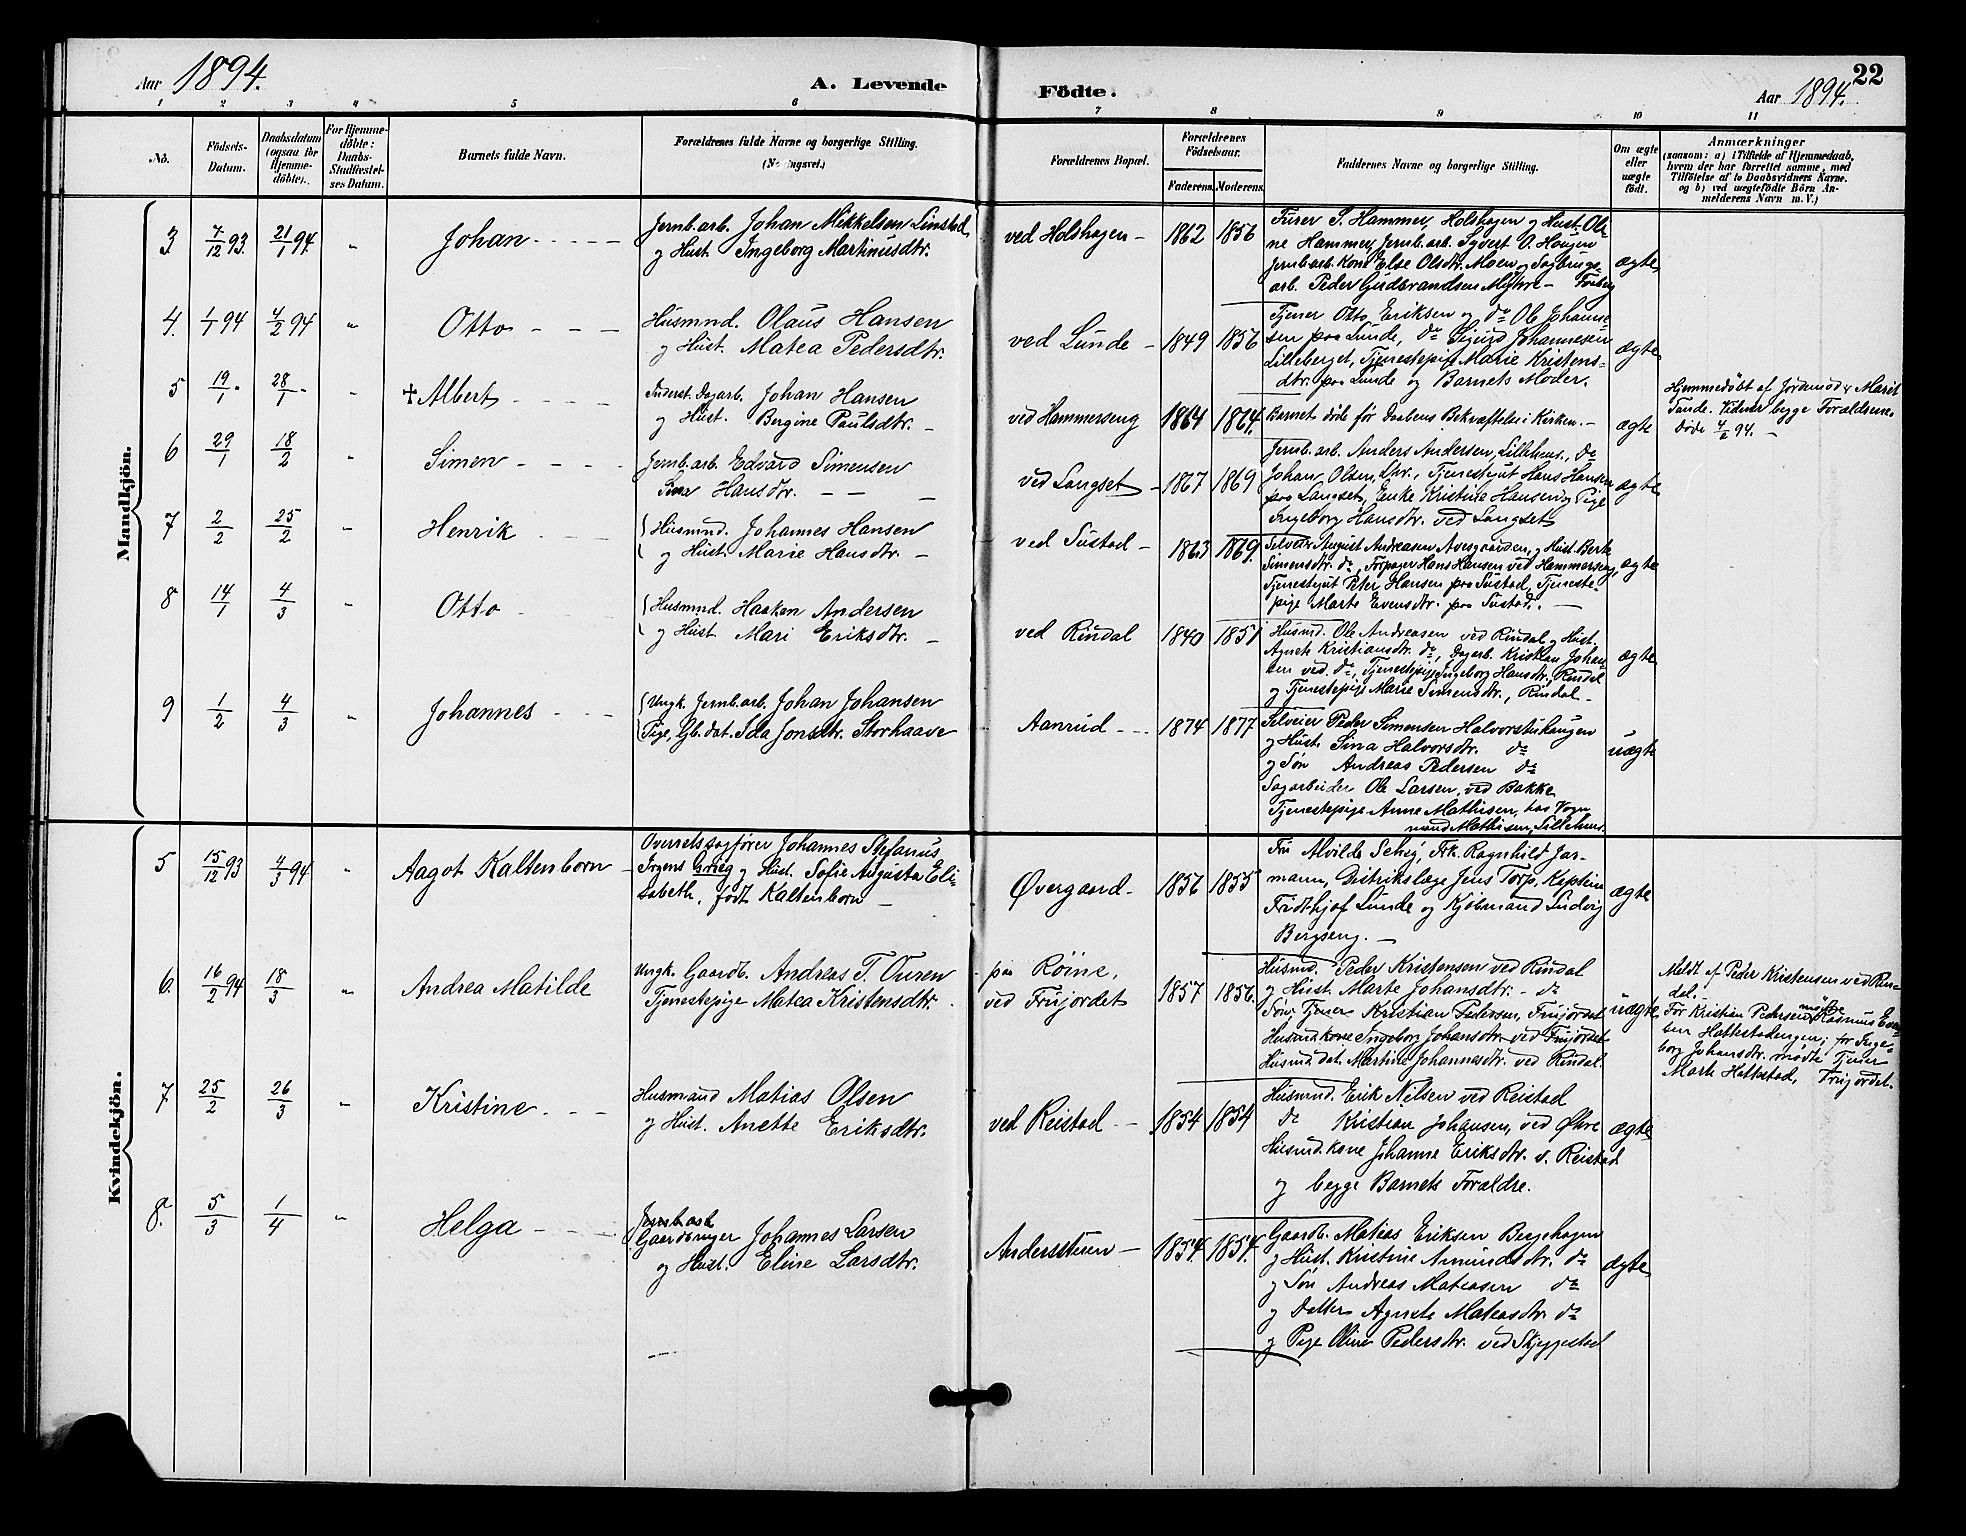 Aar 1894.
A. Levende Födte.
Aar 1894.
22
1 2 3 4 5 6 7 8 9 10 11
No.
Födsels-Datum.
Daabsdatum (ogsaa for Hjemmedöbte).
For Hjemmedöbte: Daabs-Stadfæstelses Datum.
Barnets fulde Navn.
Forældrenes fulde Navne og borgerlige Stilling.
Forældrenes Bopæl.
Forældrenes Födselsaar.
Faderens. Moderens.
Faddernes Navne og borgerlige Stilling.
Om ægte eller uægte födt.
Anmærkninger
(saasom: a) i Tilfælde af Hjemmedaab,
hvem der har forrettet samme, med
Tilföielse af to Daabsvidners Navne.
og b) ved uægtefödte Börn An-
melderens Navn m. V.)
Mandkjön.
3 7/12 93. 21/1 94 " Johan
Jernb.arb. Johan Mikkelsen Linstad
og Hust. Ingeborg Martinusdtr.
ved Holshagen - 1862 1856
Furer S. Hammer, Holshagen og Hust. Oli-
ne Hammer, Jernb.arb. Syvert O. Haugen
Jernb.arb. Kone Else Olsdtr. Moen og Sagbrugs-
arb. Peder Gudbrandsen Myhre - Faaberg
ægte
4. 1/1 94 4/2 94 " Otto
Husmnd. Olaus Hansen
og Hust. Matea Pedersdtr.
ved Lunde - 1849 1856
Tjener Otto Eriksen og do Ole Johanne-
sen paa Lunde, do Sigurd Johannesen
Lilleberget, Tjenestepige Marie Kristens-
dtr. paa Lunde og Barnets Moder.
ægte
5 19/1 " 28/1 " " † Albert
Inderst. Dagarb. Johan Hansen
og Hust. Bergine Paulsdtr. -
ved Hammerseng 1864 1864.
Barnet döde før Daabens Bekræftelse i Kirken. -
ægte
Hjemmedöbt af Jordmod. Marit
Tande. Vidner begge Forældrene.
Döde 4/2 94. -
6 29/1 18/2 " Simen
Jernb.arb. Edvard Simensen
Hansdtr. - -
ved Langset - 1867 1869
Jernb.arb. Anders Andersen, Lillehmr., do
Johan Olsen, Tjenestegut Hans Hansen
paa Langset, Enke Kristine Hansen og Pige
Ingeborg Hansdtr. ved Langset
ægte
7 2/2 25/2 " Henrik
Husmnd. Johannes Hansen
og Hust. Marie Hansdtr. -
ved Sustad - 1863 1869.
Selveier August Andreasen Avesgaarden, og Hust. Berte
Simensdtr. do, Forpagter Hans Hansen ved Hammerseng,
Tjenestegut Peter Hansen paa Sustad, Tjeneste-
pige Marte Evensdtr. paa Sustad. -
ægte
8 14/1 4/3 " Otto
Husmnd. Haaken Andersen
og Hust. Mari Eriksdtr. -
ved Rindal 1840 1851
Husmd. Ole Andreasen ved Rindal og Hust.
Agnete Kristiansdtr. do, Dagarb. Kristian Johan-
sen ved do, Tjenestepige Ingeborg Hansdtr. Rindal
og Tjenestepige Marie Simensdtr., Rindal -
ægte
9 1/2 4/3 " Johannes
Ungk. Jernb.arb. Johan Johansen
Pige, Gb.dat. Ida Jonsdtr. Storhaave
Aanrud - 1874 1877
Selveier Peder Simensen Halvorstuhaugen
og Hust. Sina Halvorsdtr. do
og Søn Andreas Pedersen do
Sagarbeider Ole Larsen, ved Bakke
Tjenestepige Anne Mathisen, hos Vogn-
mand Mathisen, Lillehmr.
uægte
Kvindekjön.
5 15/12 93 4/3 94 " Aagot Kaltenborn
Overretssagförer Johannes Stefanus
Jrgens Grieg og Hust. Sofie Augusta Eli-
sabeth, født Kaltenborn -
Øvergaard - 1856 1855
Fru Alvilde Scheij, Frk. Ragnhild Jar-
mann, Distriktslæge Jens Torp, Kaptein
Fridthjof Lunde og Kjöbmand Ludvig
Bergseng. -
ægte
6. 16/2 94 18/3 " Andrea Matilde
Ungk. Gaardb. Andreas T. Ouren
Tjenestepige Matea Kristensdtr.
paa Røine,
ved Frujordet 1857 1856.
Husmd. Peder Kristensen ved Rindal
og Hust. Marte Johansdtr. - do
Søn, Tjener Kristian Pedersen, Frujordet
Husmdkone Ingeborg Johansdtr. ved Frujordet
Husmd.dat. Martine Johannesdtr. ved Rindal.
uægte
Meldt af Peder Kristensen ved Rin-
dal. -
For Kristian Pedersen mødte Rasmus Even-
sen Hattestadengen; for Inge-
borg Johansdtr. mødte Tjener
Marte Hattestad, Frujordet.
7 25/2 26/3 " Kristine
Husmand Matias Olsen
og Hust. Anette Eriksdtr.
ved Reistad - 1854 1854
Husmnd. Erik Nilsen ved Reistad
do Kristian Johansen, ved Øhre
Husmd.kone Johanne Eriksdtr. v. Reistad
og begge Barnets Forældre.
ægte
8. 5/3 1/4 " Helga
Jernb.arb.
Gaardbruger Johannes Larsen
og Hust. Eline Larsdtr.
Andersstuen - 1854. 1854.
Gaardb. Matias Eriksen Berghagen
og Hust. Kristine Amundsdtr. do
og Søn Andreas Mateasen do
og Datter Agnete Mateasdtr. do
og Pige Oline Pedersdtr. ved Skjeggestad
ægte